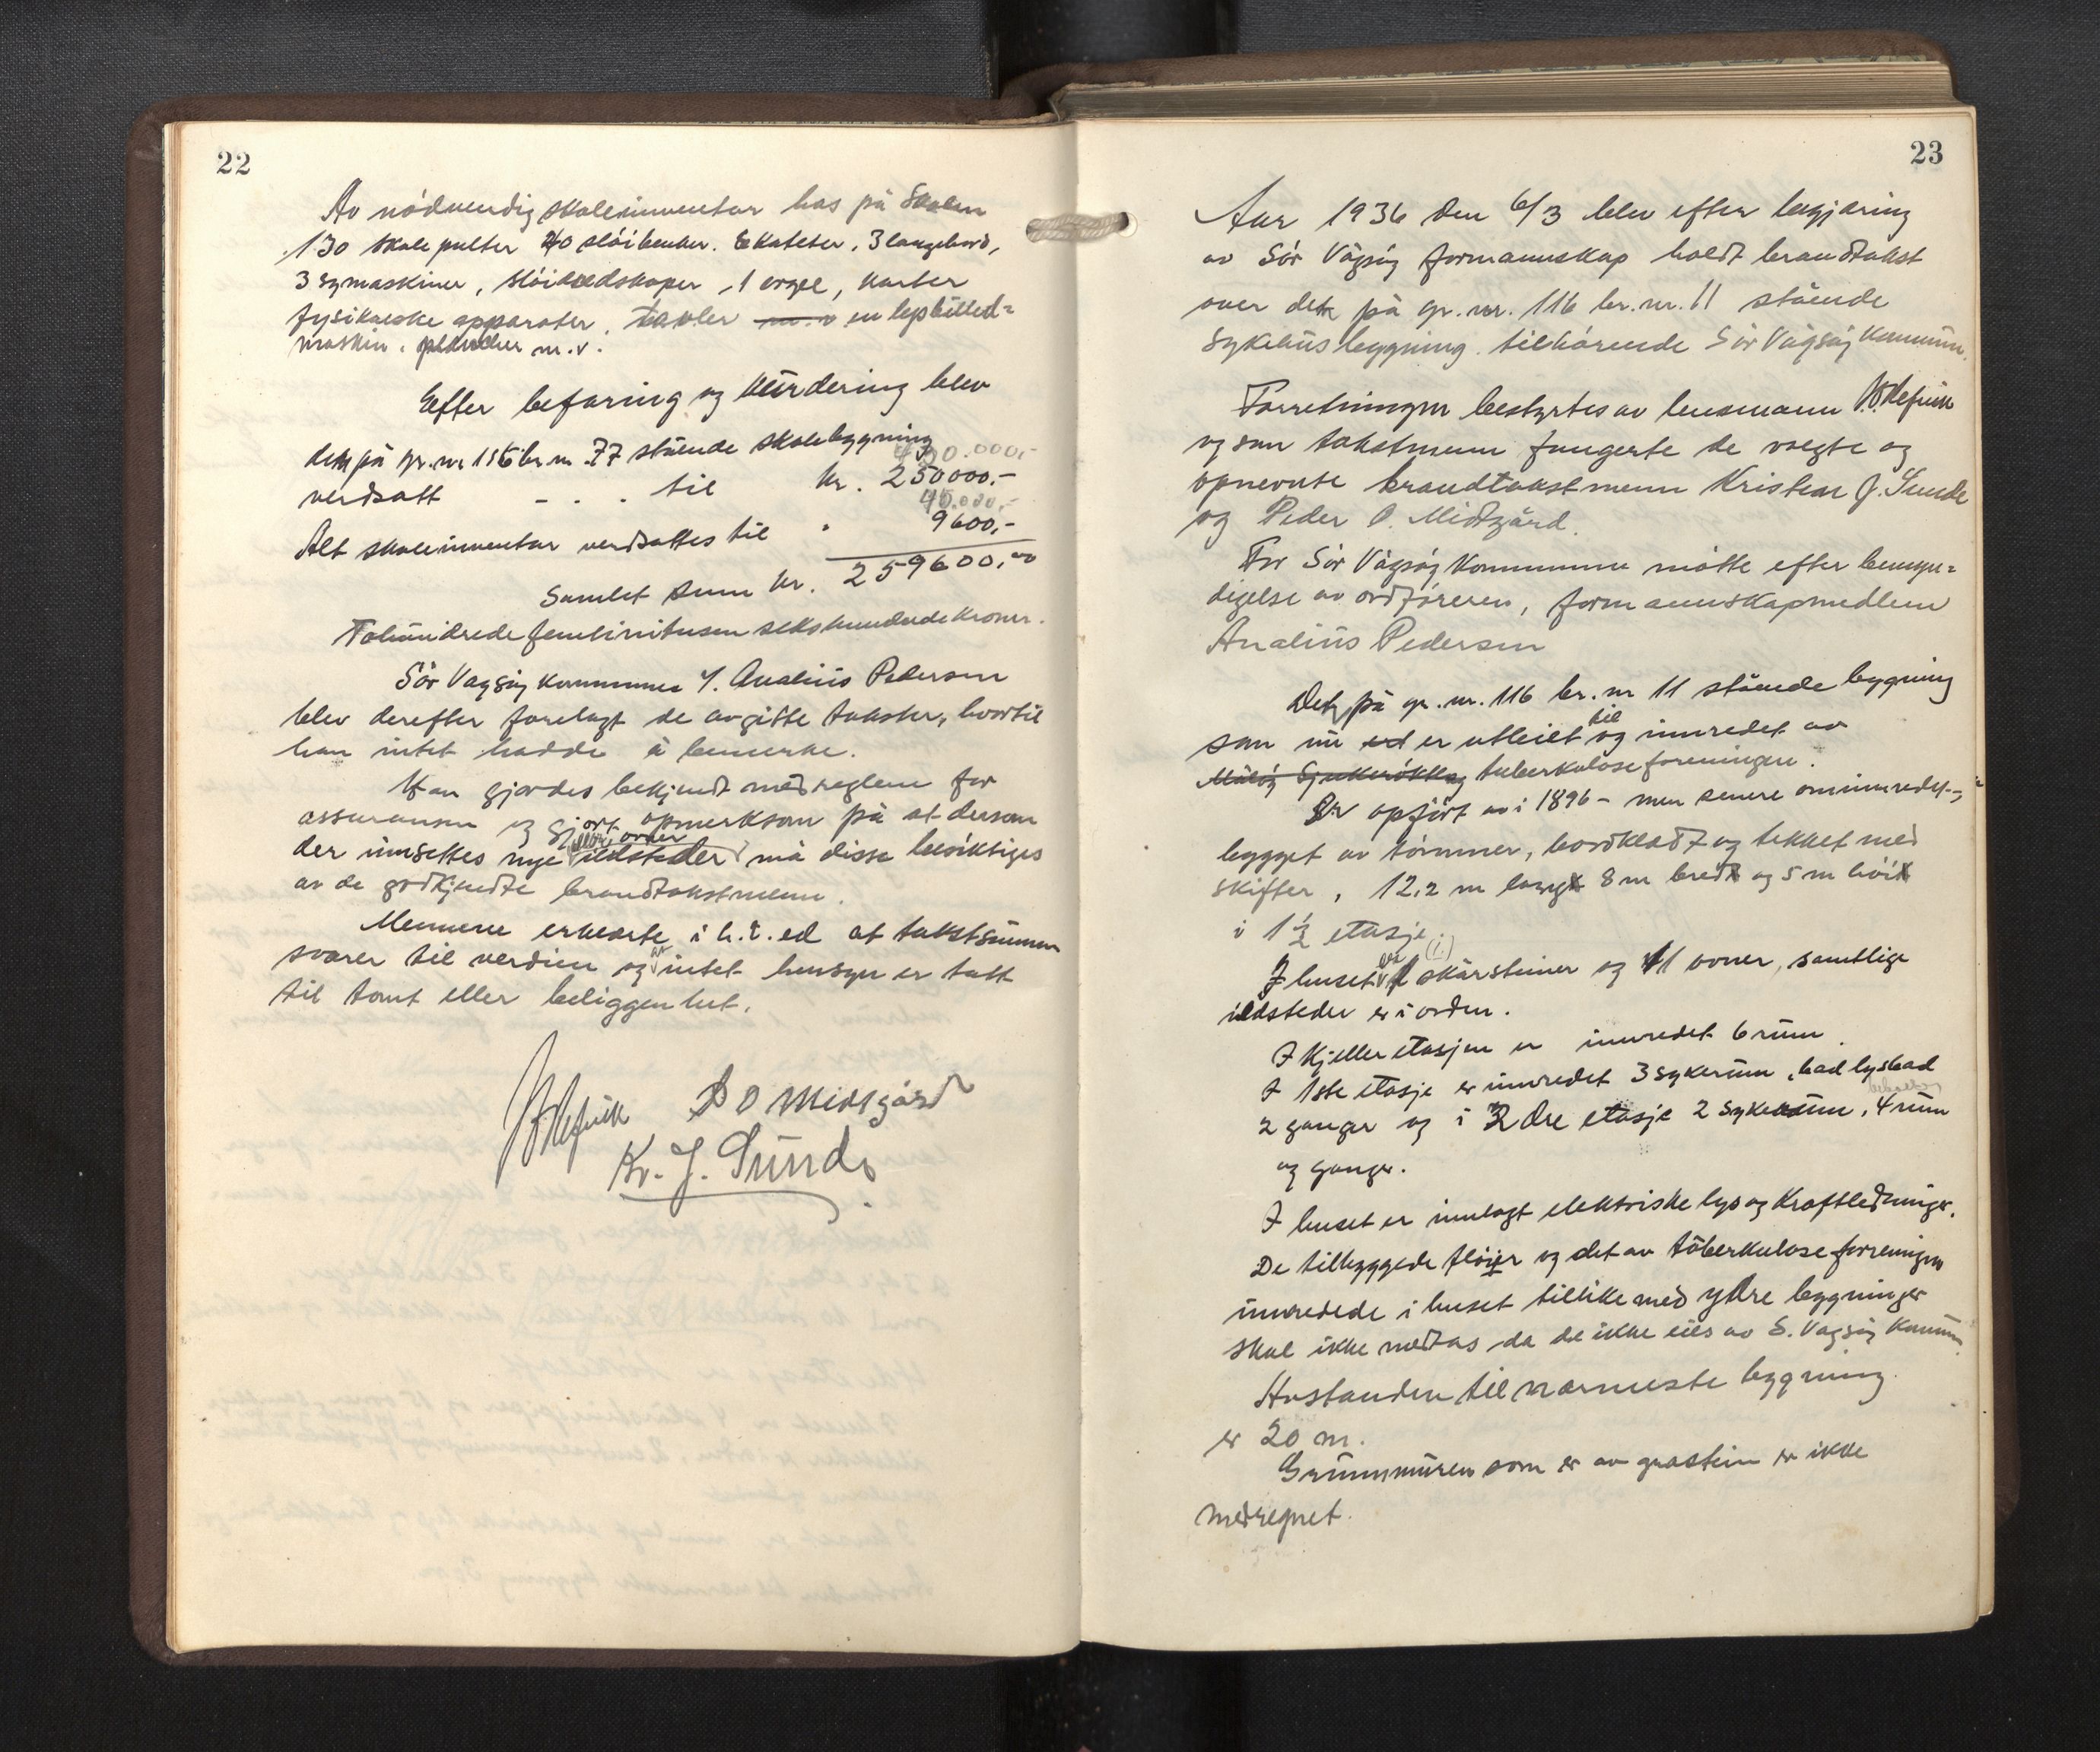 22
Av nödvendig skoleinventar has på Skolen
130 skolepulter 40 slöibenker. 6 kateter, 3 langebord,
3 symaskiner, slöiredskaper, 1 orgel, karter
fysikalske apparater, tavler m. v en lysbilled-
maskin, plancher m.v.
Efter befaring og vurdering blev
den på gr.nr 116 br.nr. 77 stående skolebygning
400.000,-
verdsatt - - . til kr. 250000.-
45.000,-
Alt skoleinventar verdsattes til " 9600,-
Samlet sum kr. 259600,00
Tohundrede femtinitusen sekshundrede kroner.
Sör Vågsöy kommune v. Analius Pedersen
blev derefter forelagt de avgitte takster, hvortil
han intet hadde å bemerke.
Han gjordes bekjendt med reglene for
assuransen og gjort opmerksom på at dersom
eller ovner
der innsettes nye ildsteder må disse besiktiges
av de godkjendte brandtakstmenn.
Mennene erklærte i h.t. ed at takstsummen
svarer til verdien og at intet hensyn er tatt
til tomt eller beliggenhet.
P O Midtgård
Kr. J. Sunde
23
Aar 1936 den 6/3 blev efter begjæring
av Sör Vågsöy formannskap holdt brandtakst
over den på gr.nr. 116 br.nr. 11 stående
Sykehusbygning tilhörende Sör Vågsöy kommune.
Forretningen bestyrtes av lensmann
og som takstmenn fungerte de valgte og
opnevnte brandtakstmenn Kristen J. Sunde
og Peder O. Midtgård.
For Sör Vågsöy Kommune mötte efter bemyn-
digelse av ordföreren, formannskapmedlem
Analius Pedersen
Den på gr.nr. 116 br.nr 11 stående bygning
til
som nu ed er utleiet og innredet av
Målöy Sjukerökkto tuberkuloseforeningen.
Er opfört av i 1896 - men senere ominnredet,
bygget av tömmer, bordkledt og tekket med
skifter, 12,2 m lang 8 m bred og 5 m höi
i 1 1/2 etasje.
er (1)
I huset 1 skårsteiner og 11 ovner, samtlige
ildsteder er i orden.
I kjelleretasjen er innredet 6 rum.
I 1ste etasje er innredet 3 sykerum, bad lysbad
2 ganger og i 2dre etasje 2 sykerum, 4 rum
og ganger.
I huset er innlagt elektriske lys og kraftledninger.
De tilbyggede flöier og det av tuberkuloseforeningen
innredede i huset tillike med ydre bygninger
skal ikke medtas da de ikke eies av S. Vågsöy kommune.
Avstanden til nærmeste bygning
er 20 m.
Grunnmuren som er av grastein er ikke
medregnet.